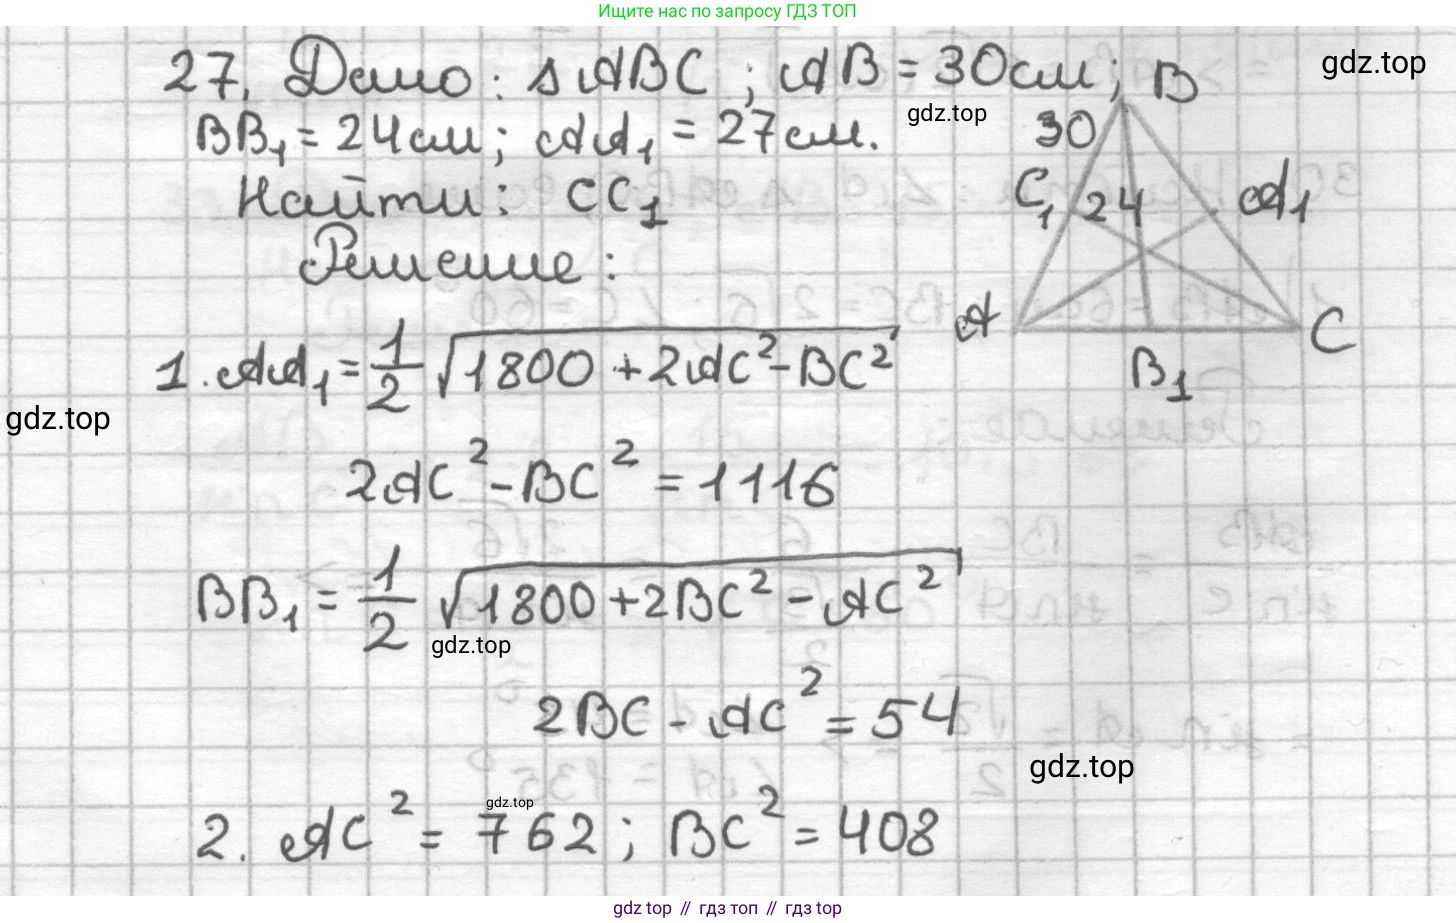 Ищите нас по запросу ГДЗ ТОП
27. Дано: ΔABC; AB = 30см;
gdz.top
BB₁ = 24см; AA₁ = 27см.
gdz.top
Найти: CC₁
Решение:
B
30
C₁
24
A₁
A
C
B₁
1. AA₁ = 1/2 √1800 + 2AC² - BC²
gdz.top
2AC² - BC² = 1116
BB₁ = 1/2 √1800 + 2BC² - AC²
gdz.top
2BC - AC² = 54
gdz.top
gdz.top
2. AC² = 762; BC² = 408
gdz.top // гдз топ // гдз.top